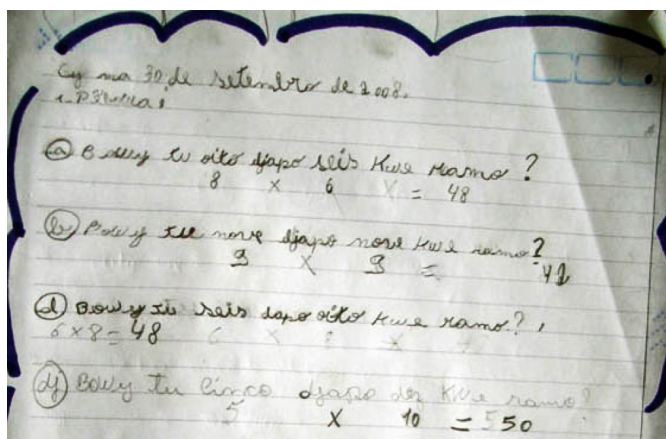 Cy ma 30 de setembro de 2008.
a Bowy tu oito djapo seis Kwe ramo?
8 x 6 = 48
b Bowy tu nove djapo nove Kwe ramo?
9 x 9 =
d Bowy tu seis dapo oito Kwe ramo?
6 x 8 = 48
d Bowy tu cinco djapo dez Kwe ramo?
5 x 10 = 550